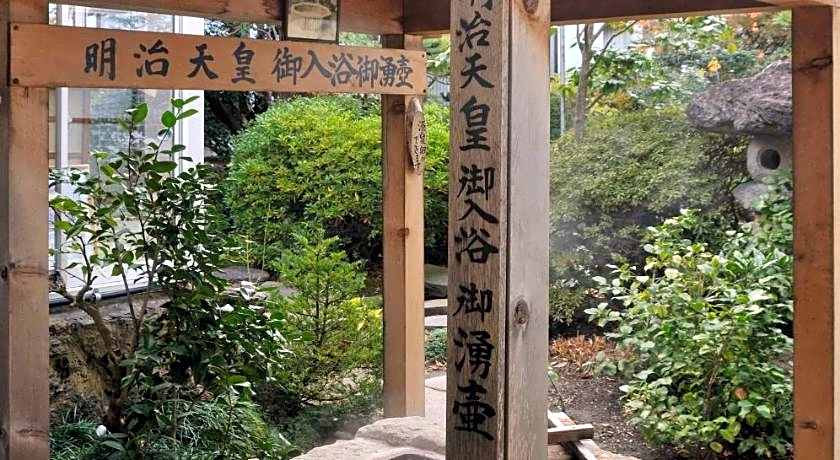 明治天皇 御入浴御湧壺
明治天皇御入浴御湧壺